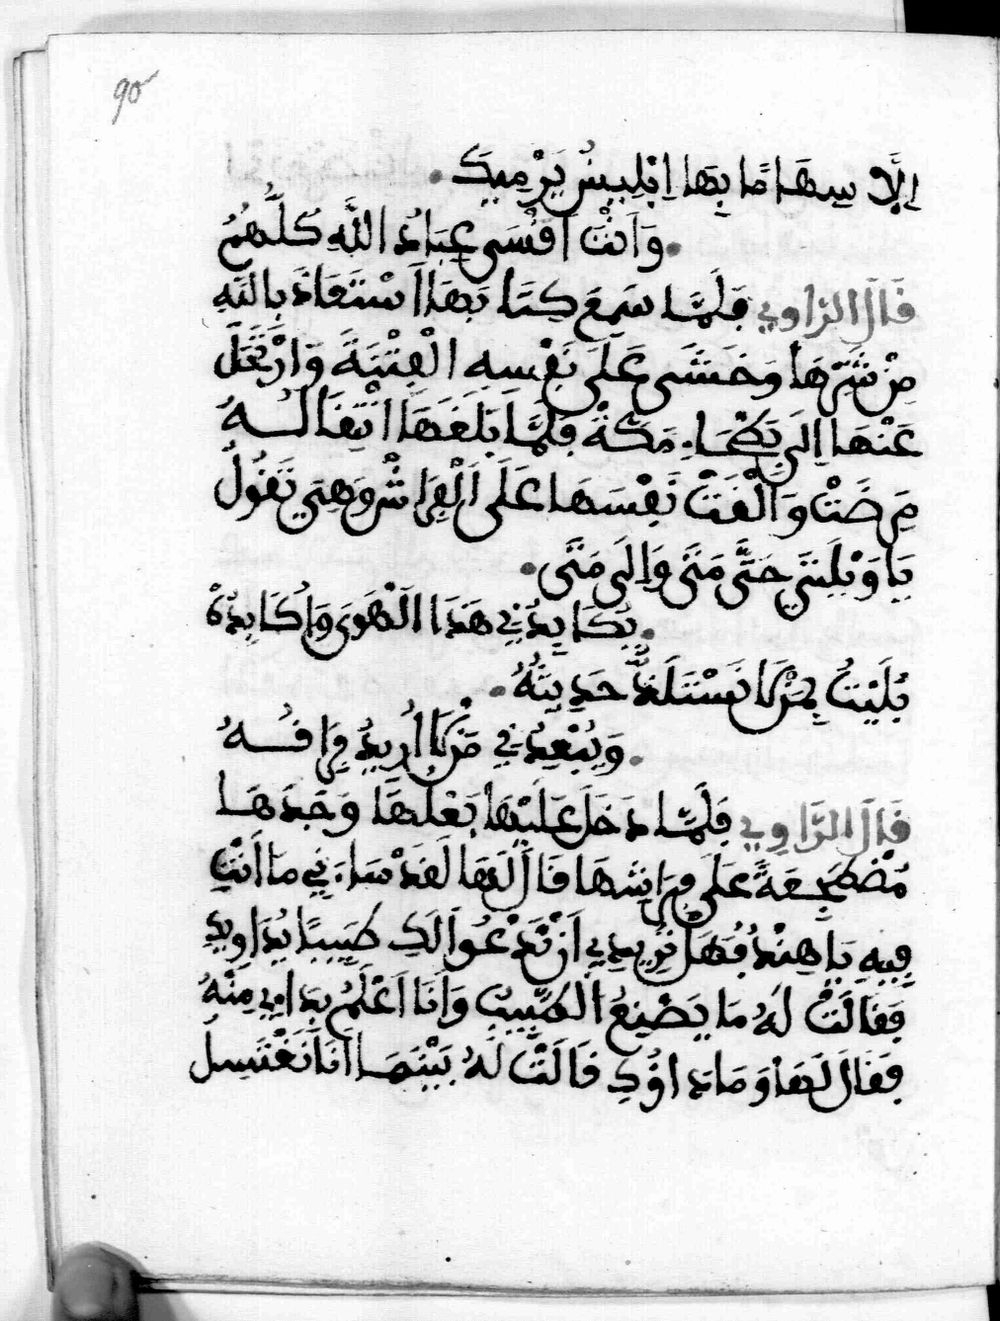 90
إِلَّا سِهَامًا بِهَا إِبْلِيسُ يَرْمِيكَ .
. وَأَنْتَ أَقْسَى عِبَادُ اللَّهِ كُلُّهُمُ
قَالَ الرَّاوِي فَلَمَّا سَمِعَ كِتَابَهَا اسْتَعَاذَ بِاللَّهِ
مِنْ شَرِّهَا وَخَشَى عَلَى نَفْسِهِ الْفِتْنَةَ وَارْتَحَلَ
عَنْهَا إِلَى بَطْحَاءِ مَكَّةَ فَلَمَّا بَلَغَهَا انْتِقَالُهُ
مَرِضَتْ وَأَلْقَتْ نَفْسَهَا عَلَى الْفِرَاشِ وَهِيَ تَقُولُ
يَا وَيْلَتِي حَتَّى مَتَى وَإِلَى مَتَى .
. يُكَايِدُنِي هَذَا الْهَوَى وَأُكَابِدُهْ
بُلِيتُ بِمَنْ لَا نَسْتَلَذُّ حَدِيثَهُ .
. وَيُبْعِدُنِي مَنْ لَا أُرِيدُ فِرَاقُهُ
قَالَ الرَّاوِي فَلَمَّا دَخَلَ عَلَيْهَا بَعْلُهَا وَجَدَهَا
مُضْطَجِعَةً عَلَى فِرَاشِهَا قَالَ لَهَا لَقَدْ سَاءَنِي مَا أَنْتِ
فِيهِ يَا هِنْدُ فَهَلْ تُرِيدِي أَنْ نَدْعُوا لَكِ طَبِيبًا يُدَاوِيكِ
فَقَالَتْ لَهُ مَا يَصْنَعُ الطَّبِيبُ وَأَنَا أَعْلَمُ بِدَائِي مِنْهُ
فَقَالَ لَهَا وَمَا دَاؤُكِ قَالَتْ لَهُ بَيْنَمَا أَنَا نَغْتَسِلُ